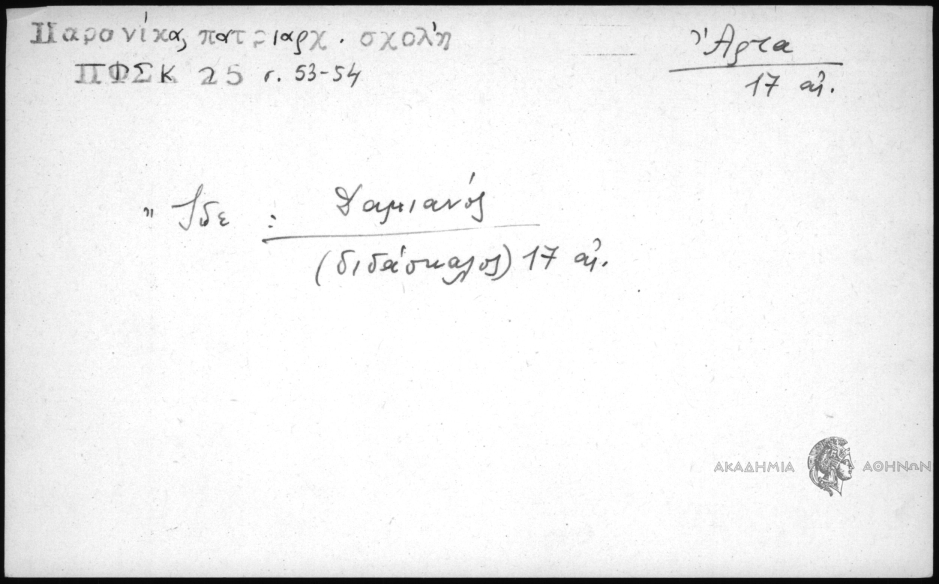 Παρανίκας πατριαρχ. σχολή
ΠΦΣΚ 25 σ. 53-54
Ἄρτα
17 αἰ.
Ἴδε : Δαμιανός
(διδάσκαλος) 17 αἰ.
ΑΚΑΔΗΜΙΑ ΑΘΗΝΩΝ